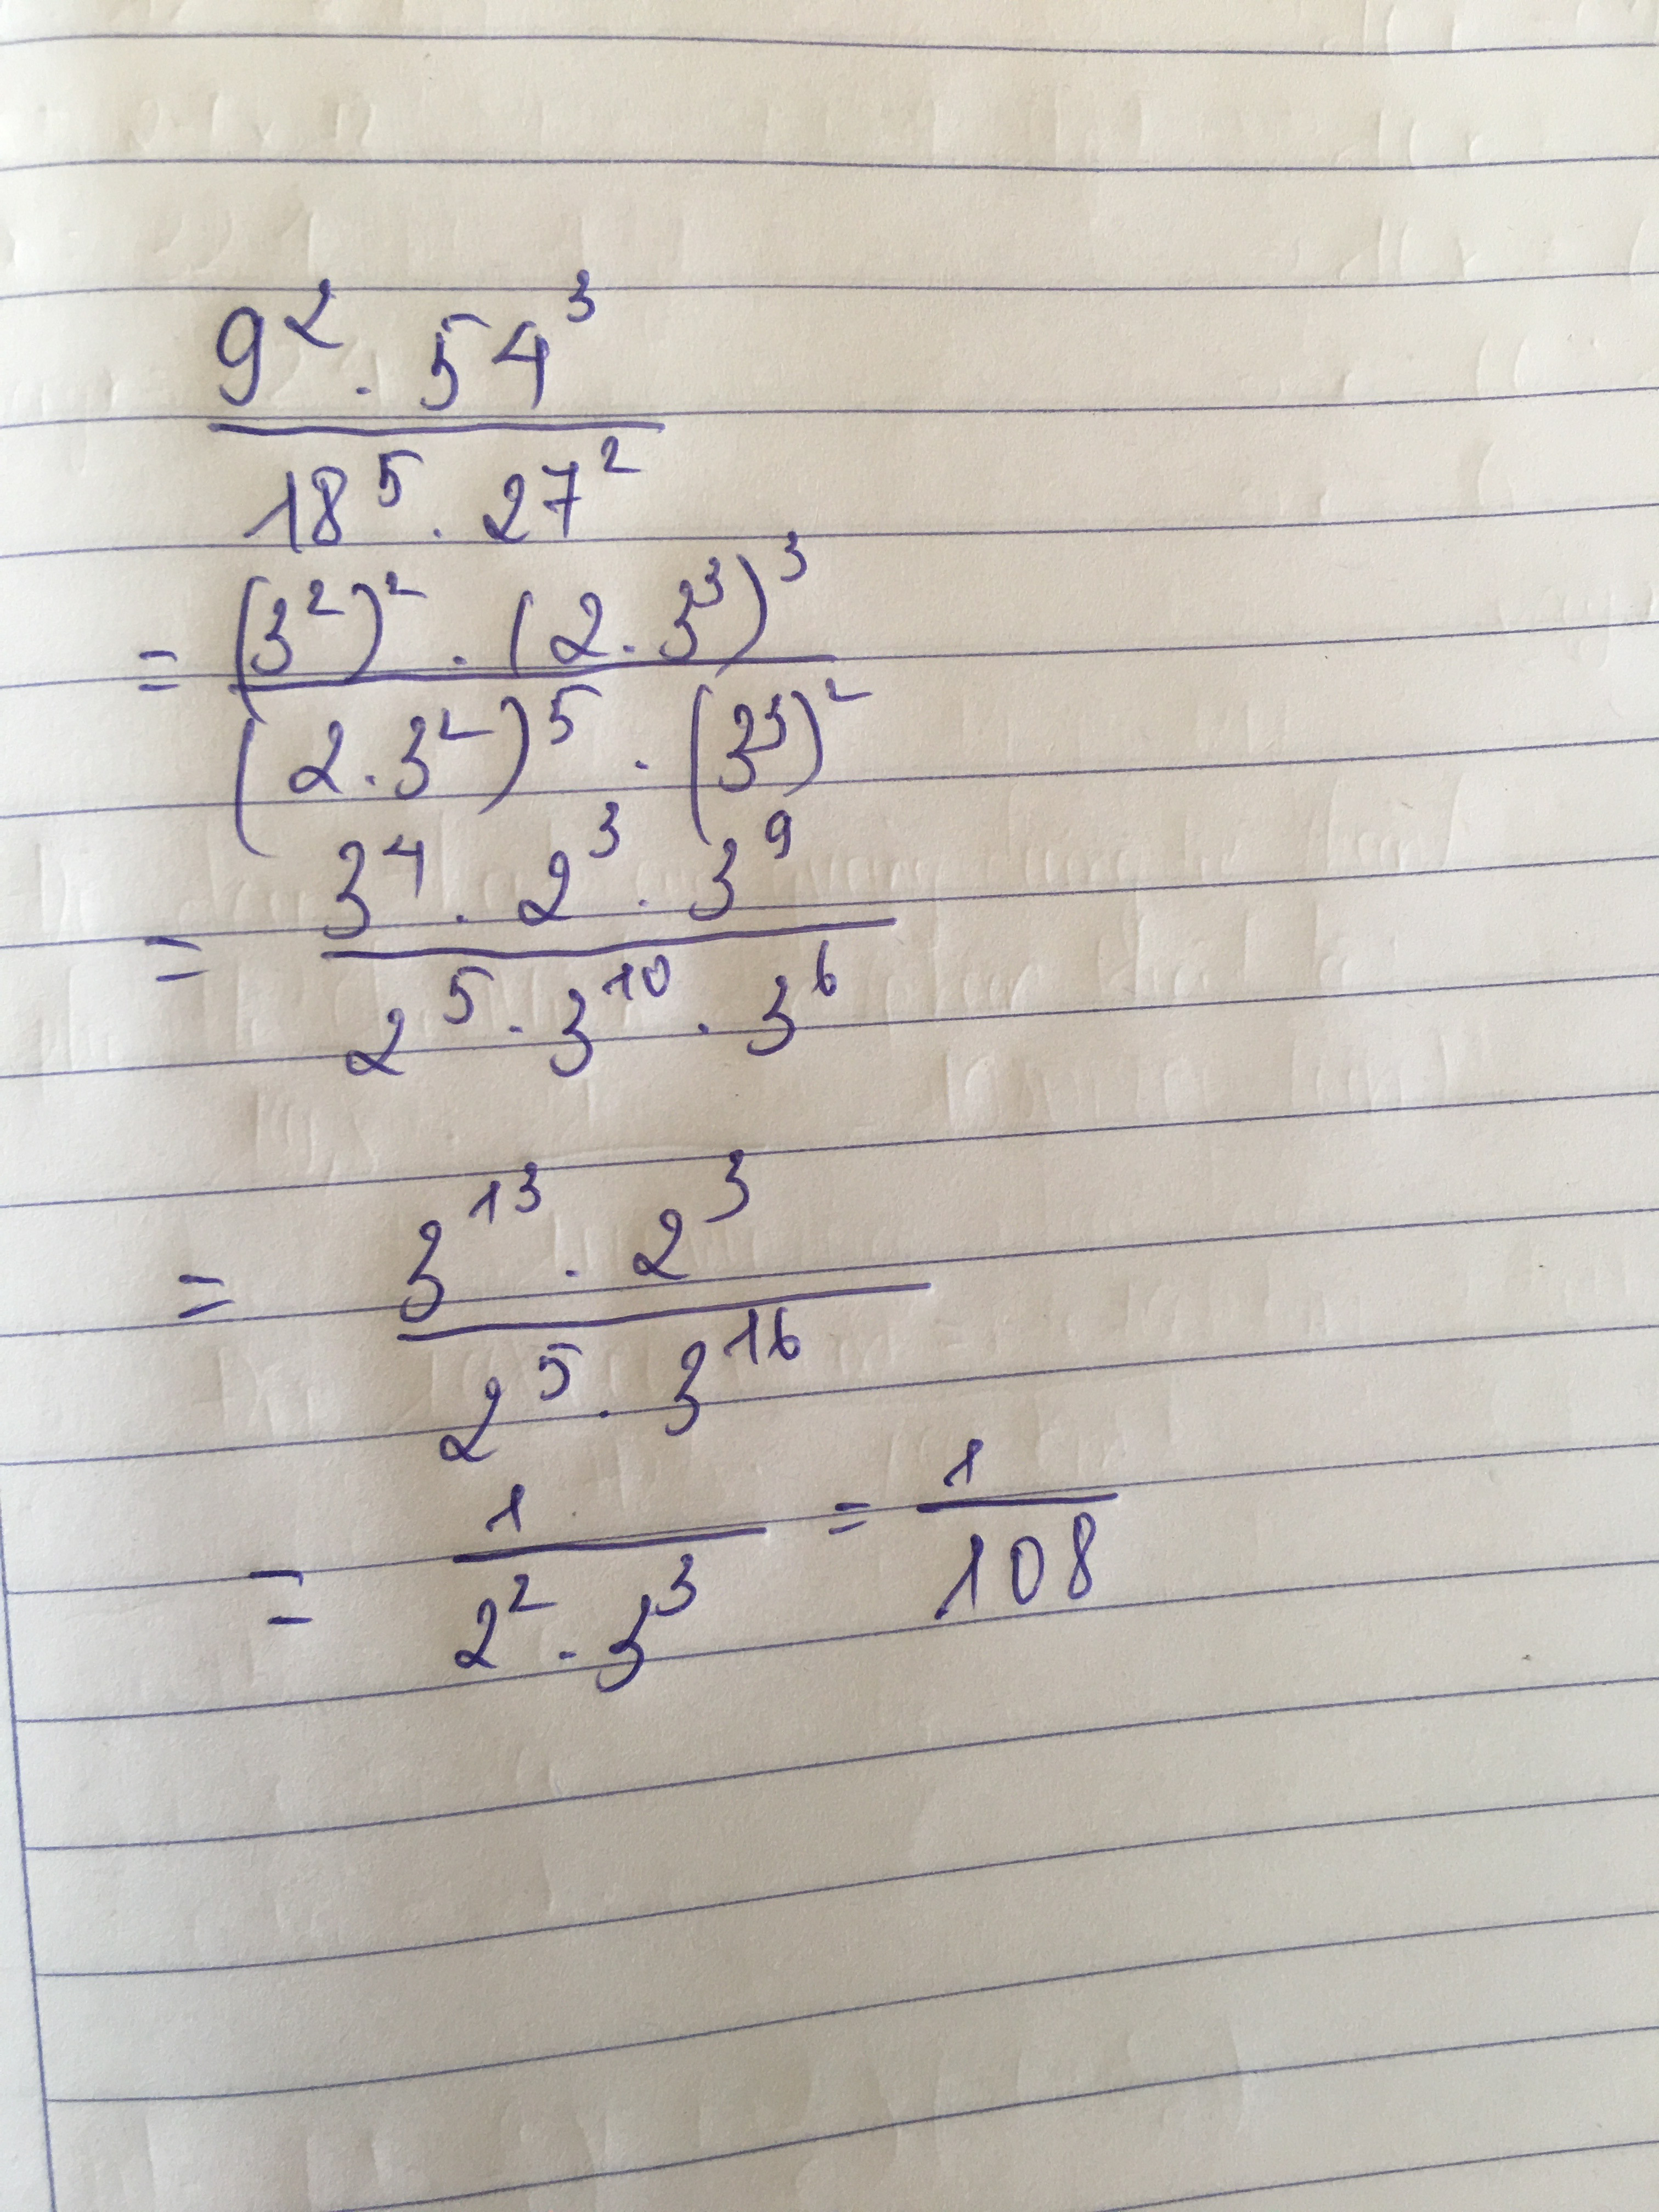 9² . 54³
18⁵ . 27²
= (3²)² . (2.3³)³
(2.3²)⁵ . (3³)²
= 3⁴ . 2³ . 3⁹
2⁵ . 3¹⁰ . 3⁶
= 3¹³ . 2³
2⁵ . 3¹⁶
= 1 = 1
2² . 3³ 108